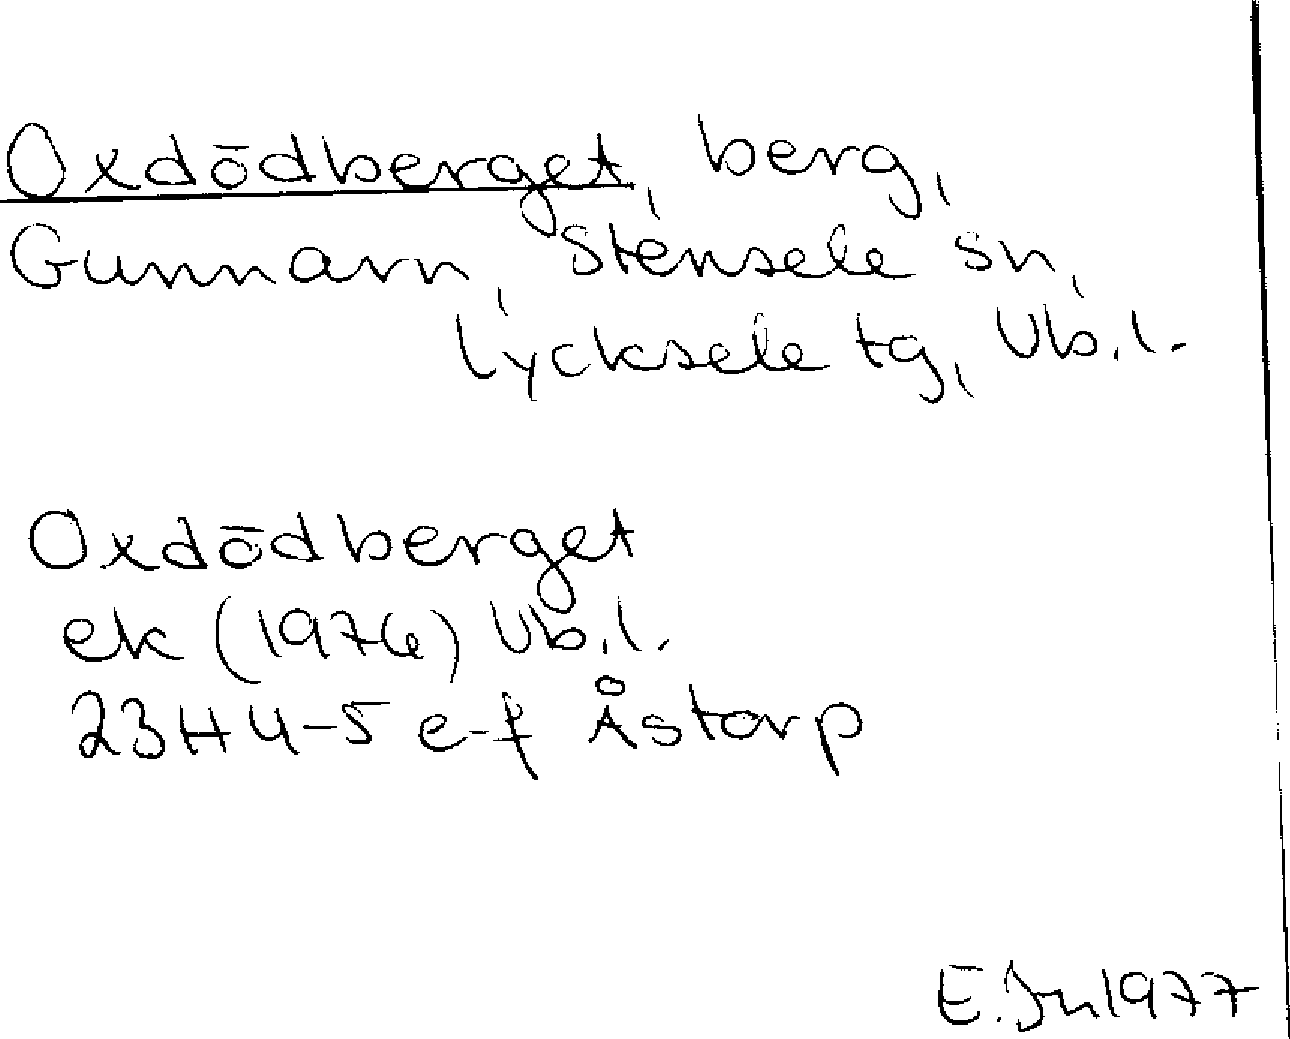 Oxdödberget, berg,
Gunnarn, Stensele sn,
Lycksele tg, Vb.l.
Oxdödberget
ek (1976) Vb.l.
23H 4-5 e-f Åstorp
E. Jn 1977